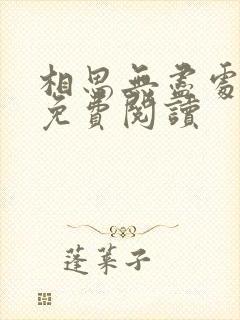 相思無盡處
免費閱讀
蓬萊子